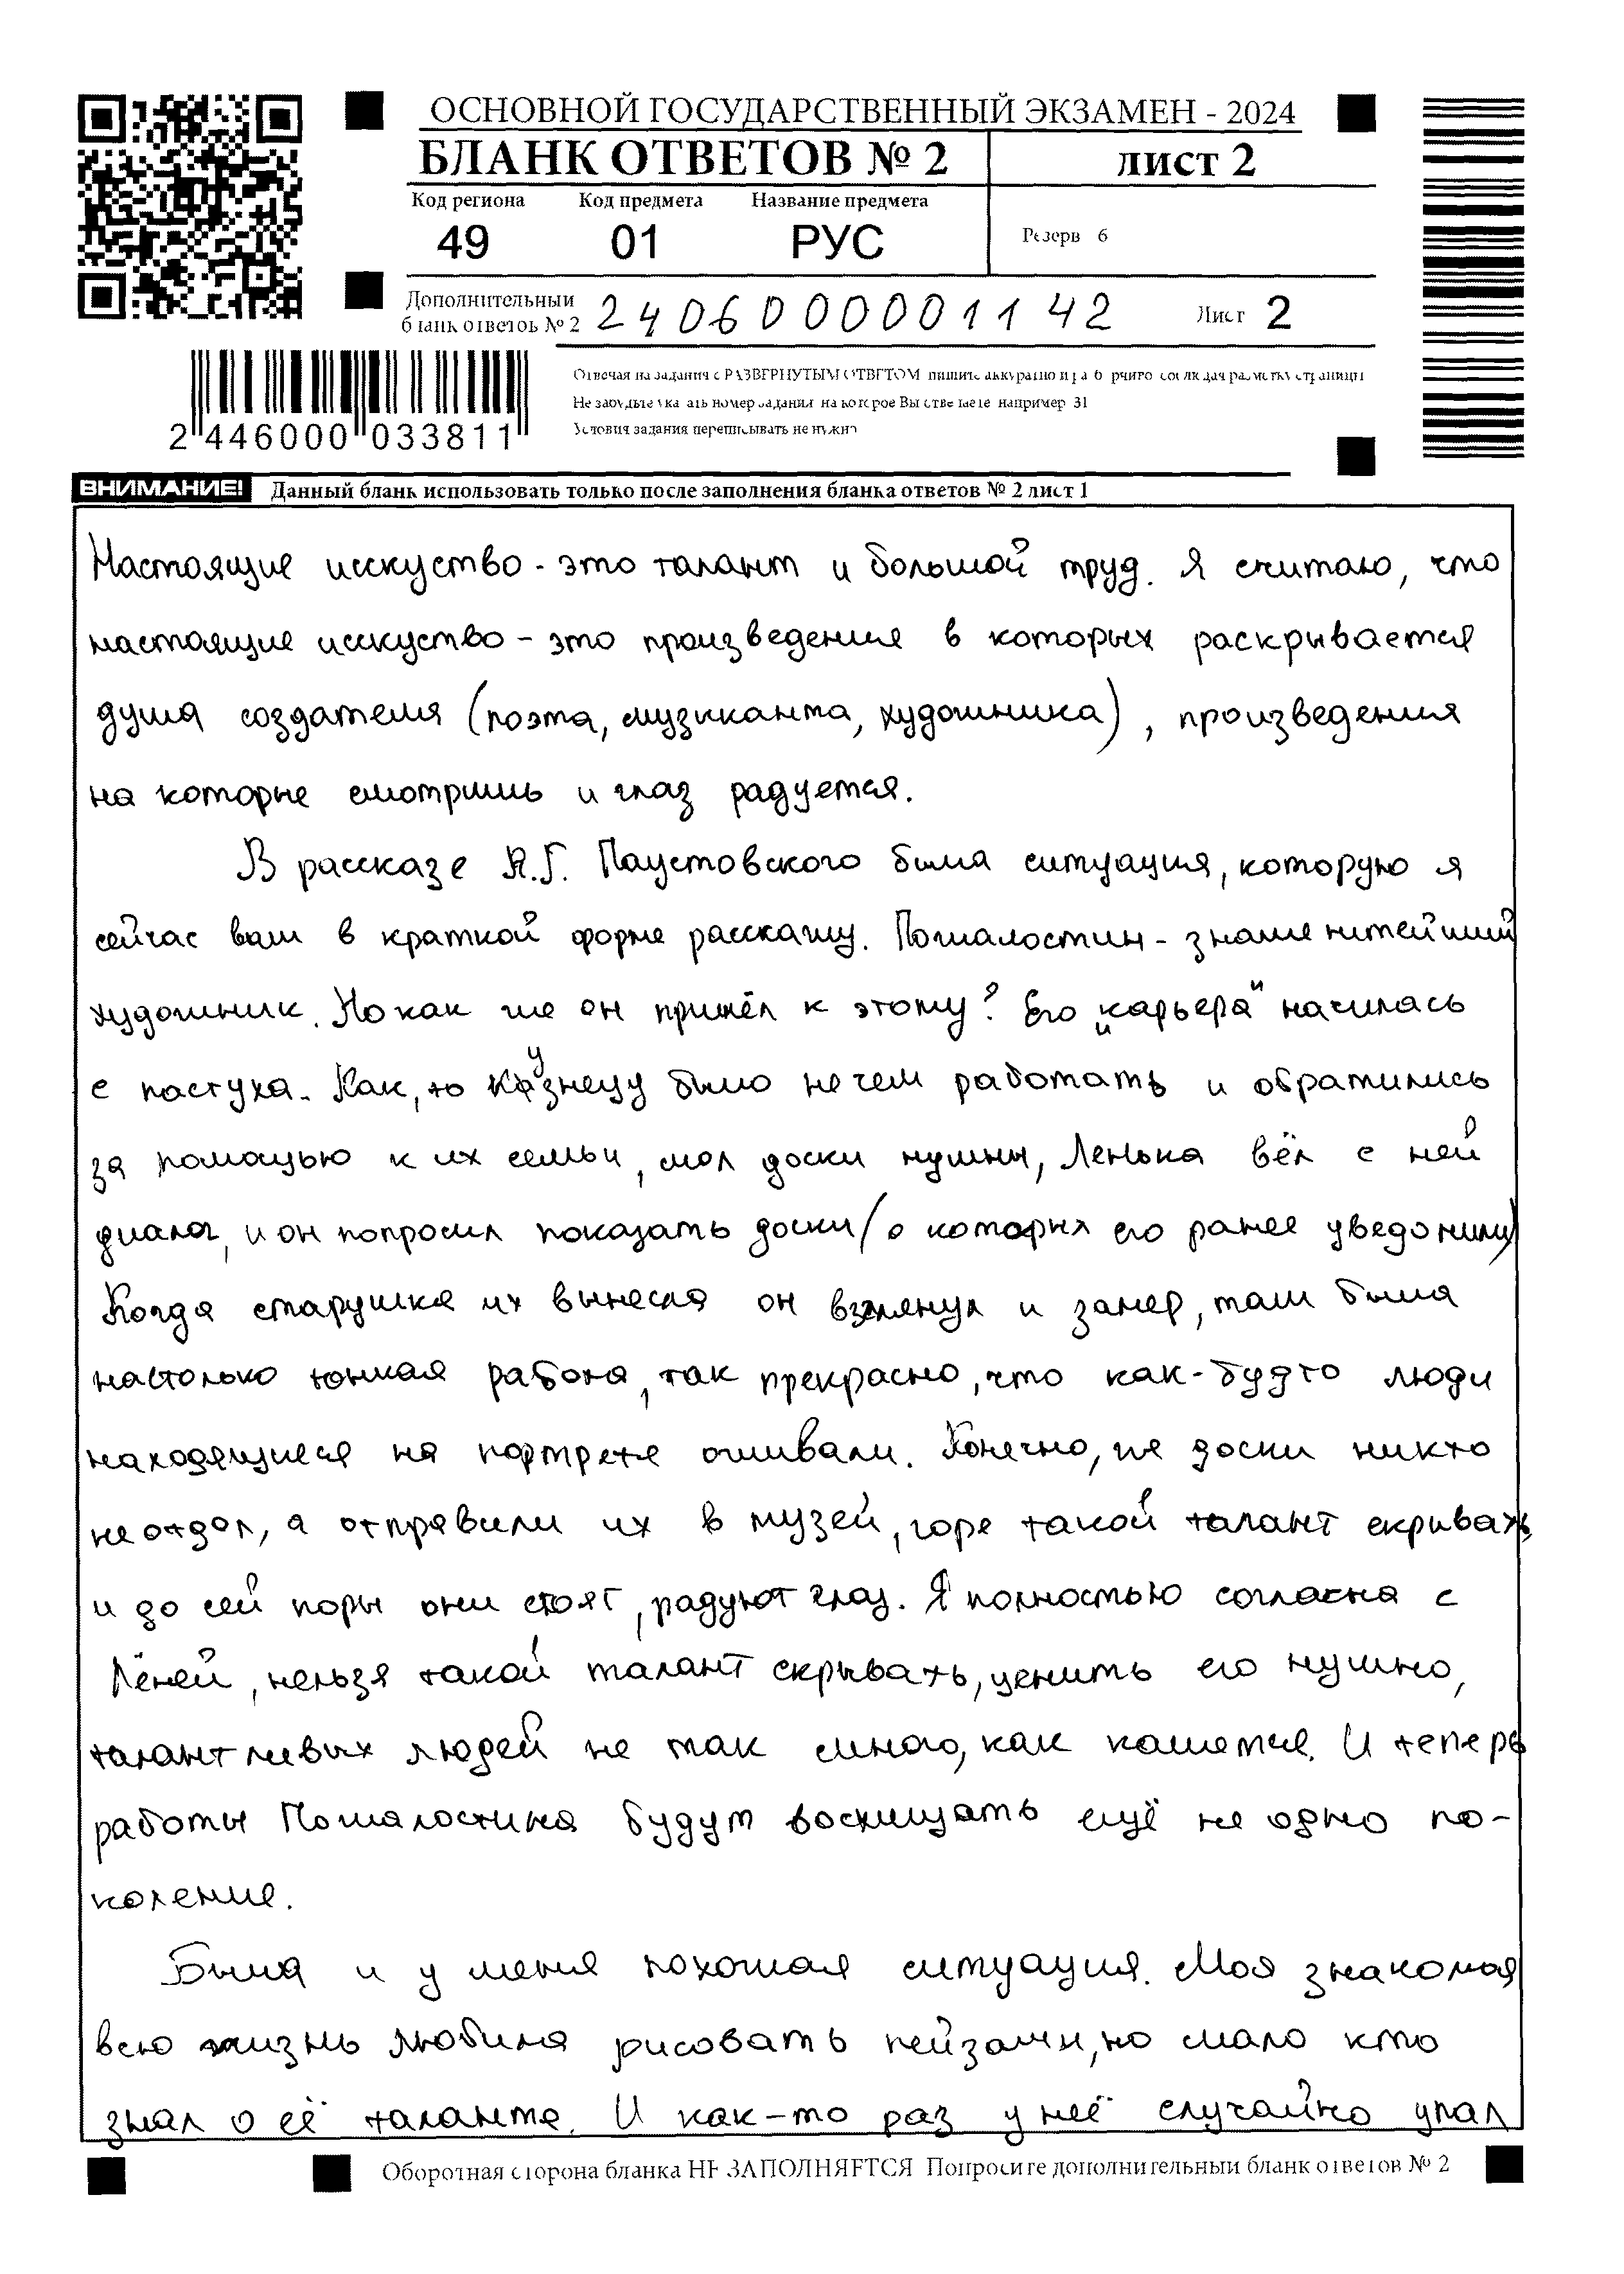 ОСНОВНОЙ ГОСУДАРСТВЕННЫЙ ЭКЗАМЕН - 2024
БЛАНК ОТВЕТОВ № 2
лист 2
Код региона Код предмета Название предмета
49 01 РУС
Резерв 6
Дополнительный
бланк ответов № 2
2406000001142
Лист 2
2 446000 033811
Отвечая на задания с РАЗВЕРНУТЫМ ОТВЕТОМ пишите аккуратно и разборчиво соблюдая разметку страницы
Не забудьте указать номер задания на которое Вы отвечаете например 31
Условия задания переписывать не нужно
ВНИМАНИЕ! Данный бланк использовать только после заполнения бланка ответов № 2 лист 1
Настоящие исскуство - это талант и большой труд. Я считаю, что
настоящие исскуство - это произведения в которых раскрывается
душа создателя (поэта, музыканта, художника), произведения
на которые смотришь и глаз радуется.
В рассказе К.Г. Паустовского была ситуация, которую я
сейчас вам в краткой форме расскажу. Пожалостин - знаменитейший
художник. Но как же он пришёл к этому? Его "карьера" началась
с пастуха. Как, то Кузнецу было нечем работать и обратились
за помощью к их семьи, мол доски нужны, Ленька вёл с ней
диалог, и он попросил показать доски (о которых его ранее уведомили)
Когда старушка их вынесла он взглянул и замер, там была
настолько тонкая работа, так прекрасно, что как-будто люди
находящиеся на портрете оживали. Конечно, же доски никто
не отдал, а отправили их в музей, горе такой талант скривать,
и до сей поры они стоят, радуют глаз. Я полностью согласна с
Лёней, нельзя такой талант скрывать, ценить его нужно,
талантливых людей не так много, как кажется. И теперь
работы Пожалостина будут восхищать ещё не одно по-
коление.
Была и у меня похожая ситуация. Моя знакомая
всю жизнь любила рисовать пейзажи, но мало кто
знал о её таланте. И как-то раз у неё случайно упал
Оборотная сторона бланка НЕ ЗАПОЛНЯЕТСЯ Попросите дополнительный бланк ответов № 2